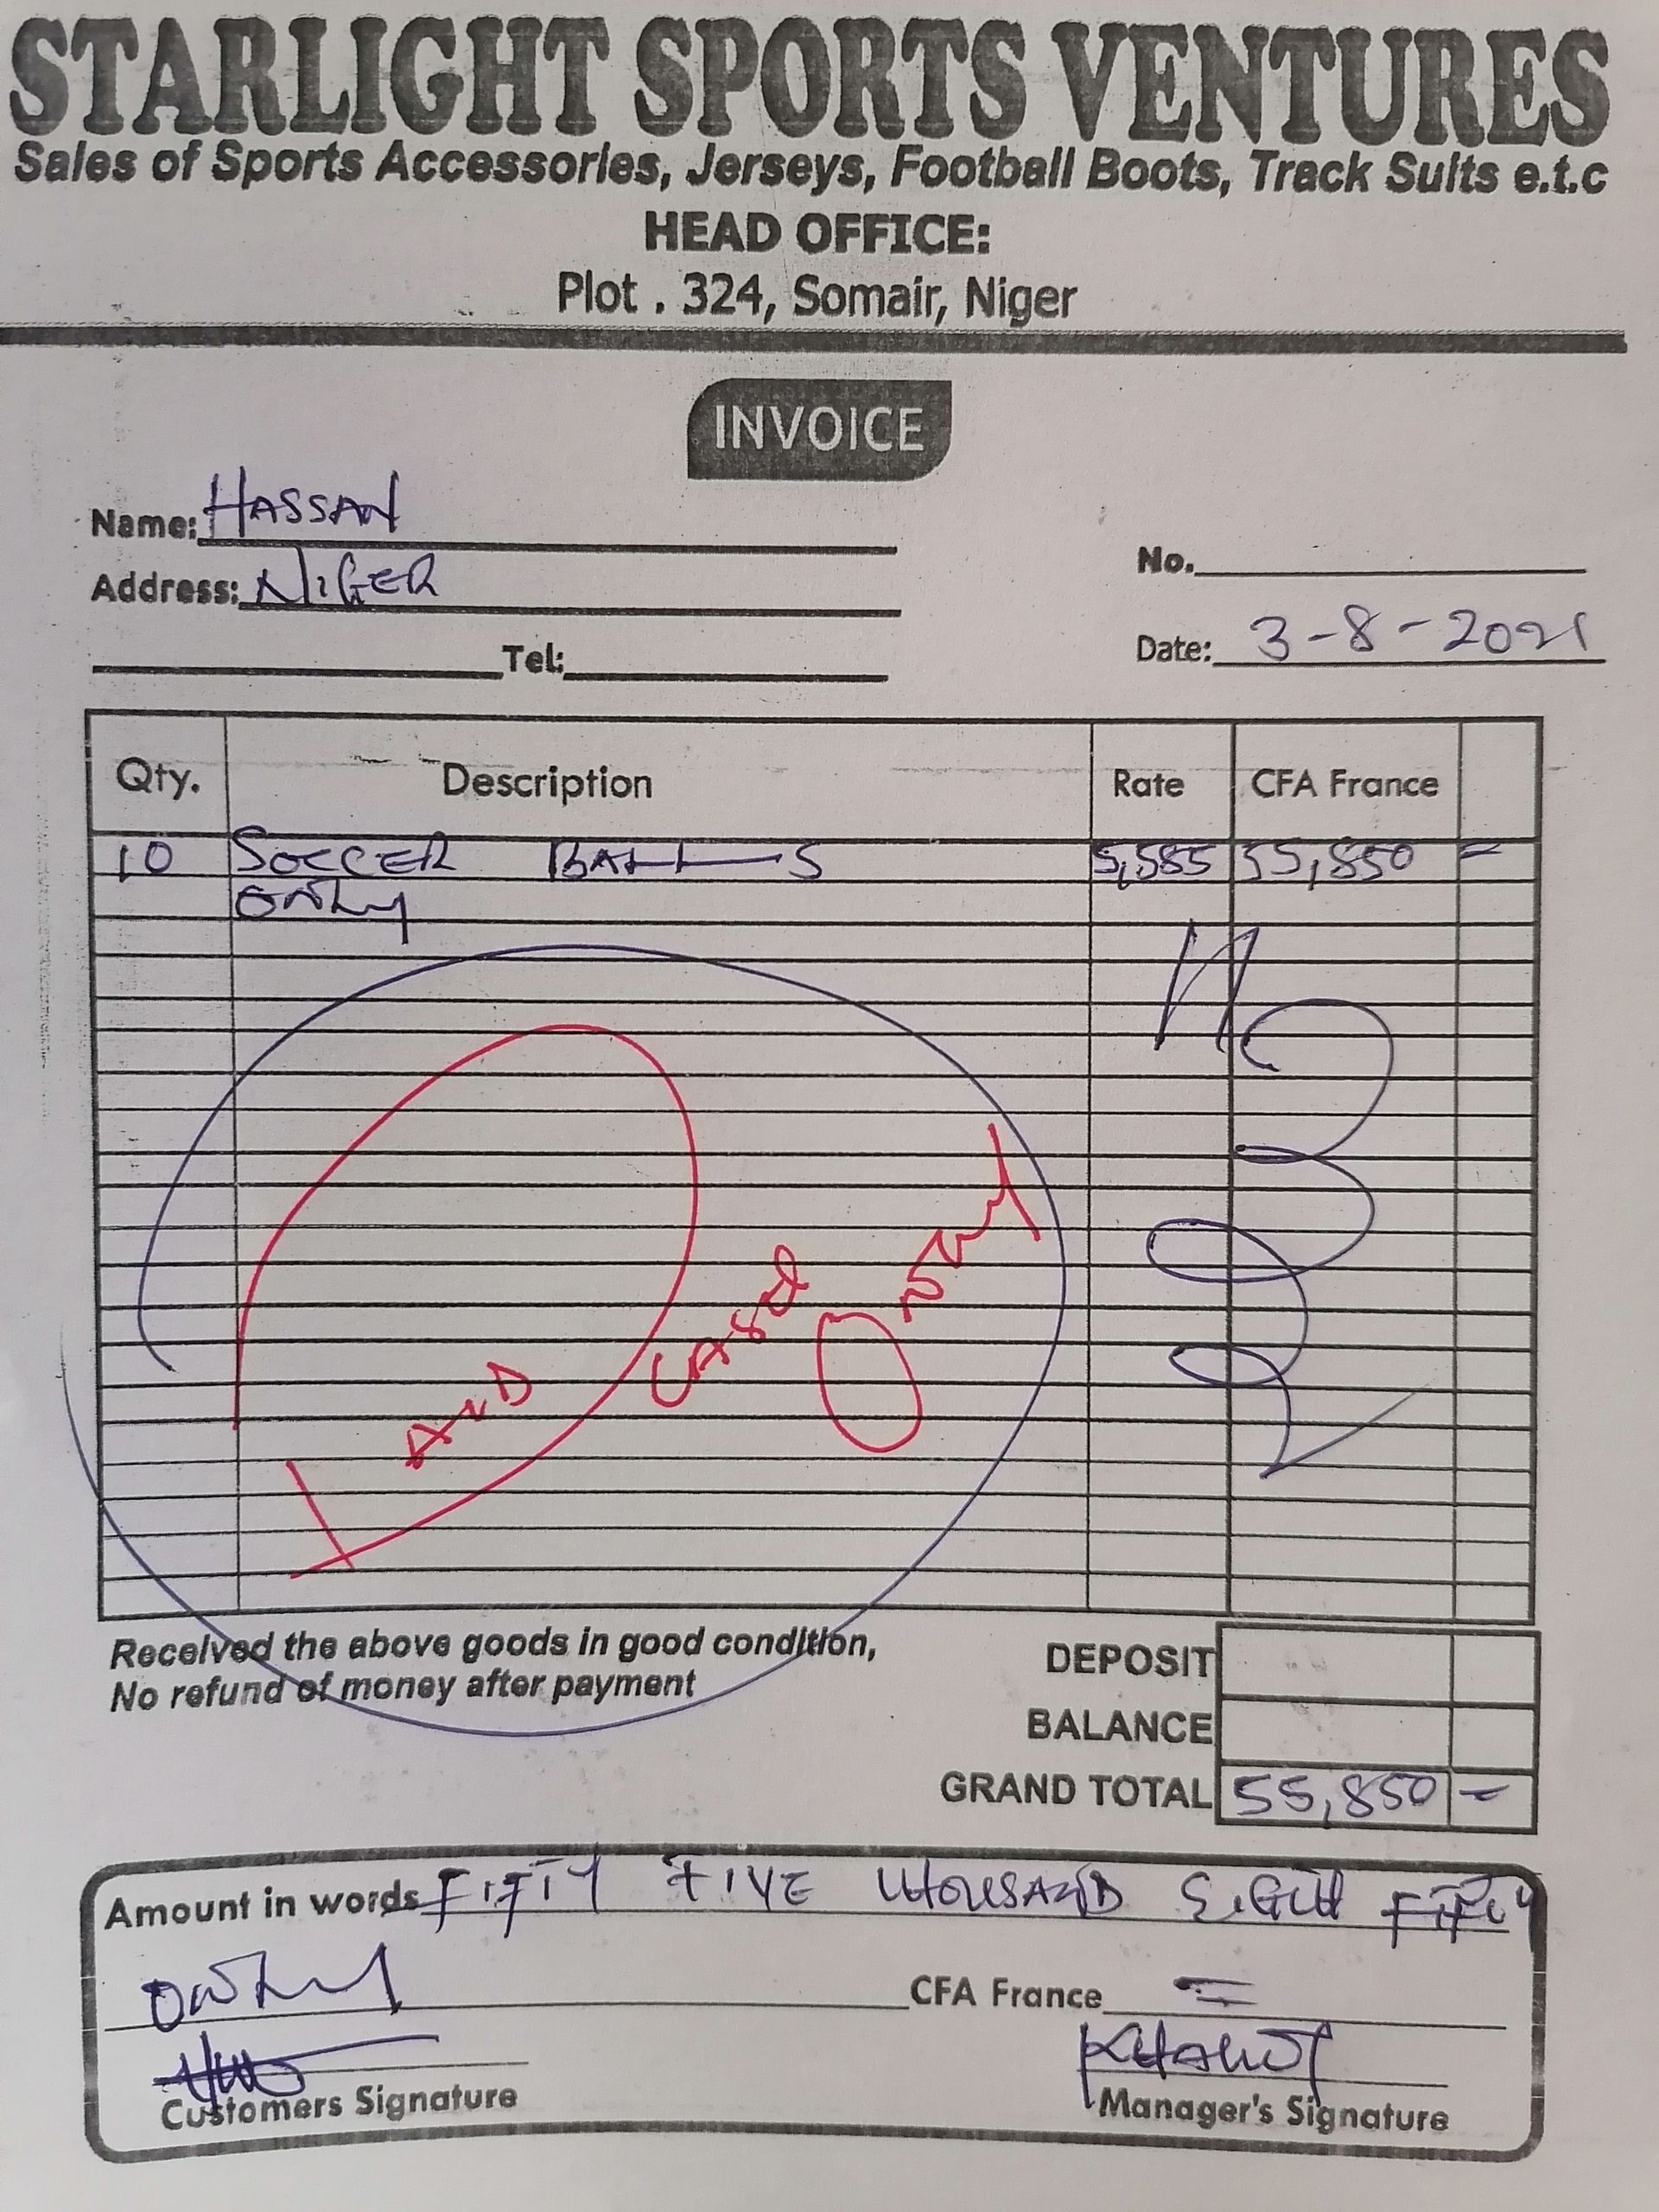 STARLIGHT SPORTS VENTURES
Sales of Sports Accessories, Jerseys, Football Boots, Track Suits e.t.c
HEAD OFFICE:
Plot . 324, Somair, Niger
INVOICE
Name: HASSAN
Address: NIGER
Tel:
No.
Date: 3-8-2021
Qty. Description Rate CFA France
10 SOCCER BALLS 5,585 55,850 =
ONLY
AND CASH ONLY
Received the above goods in good condition,
No refund of money after payment
DEPOSIT
BALANCE
GRAND TOTAL 55,850 =
Amount in words FIFTY FIVE THOUSAND EIGHT FIFTY
ONLY CFA France =
Customers Signature
Manager's Signature